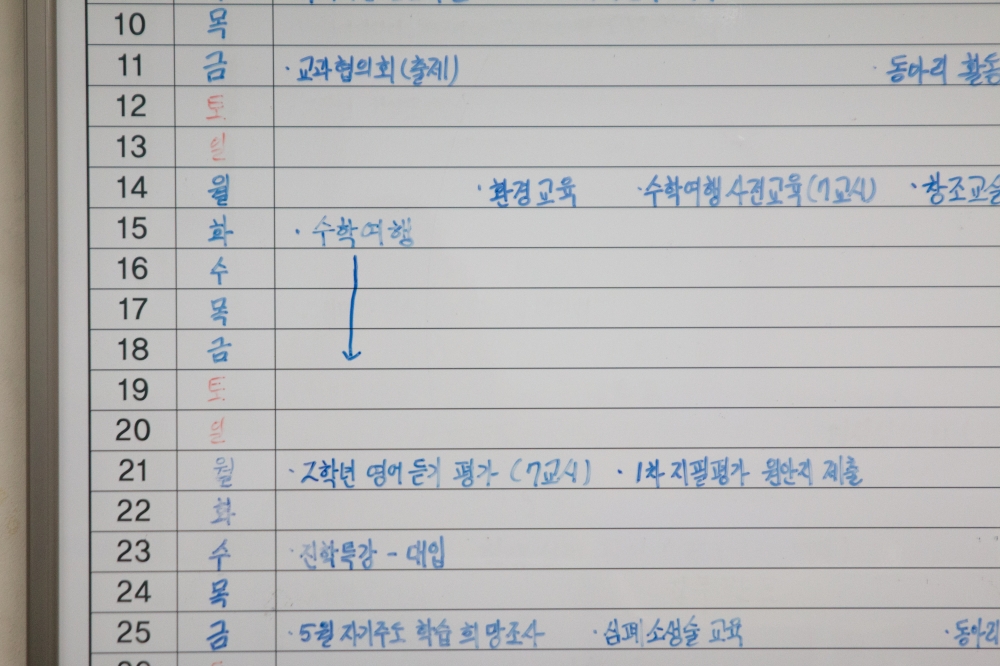 10 목
11 금 ·교과협의회(출제) ·동아리 활동
12 토
13 일
14 월 ·환경교육 ·수학여행 사전교육(7교시) ·창조교실
15 화 ·수학여행
16 수
17 목
18 금
19 토
20 일
21 월 ·2학년 영어듣기 평가 (7교시) ·1차 지필평가 원안지 제출
22 화
23 수 ·진학특강 - 대입
24 목
25 금 ·5월 자기주도 학습 희망조사 ·심폐소생술 교육 ·동아리